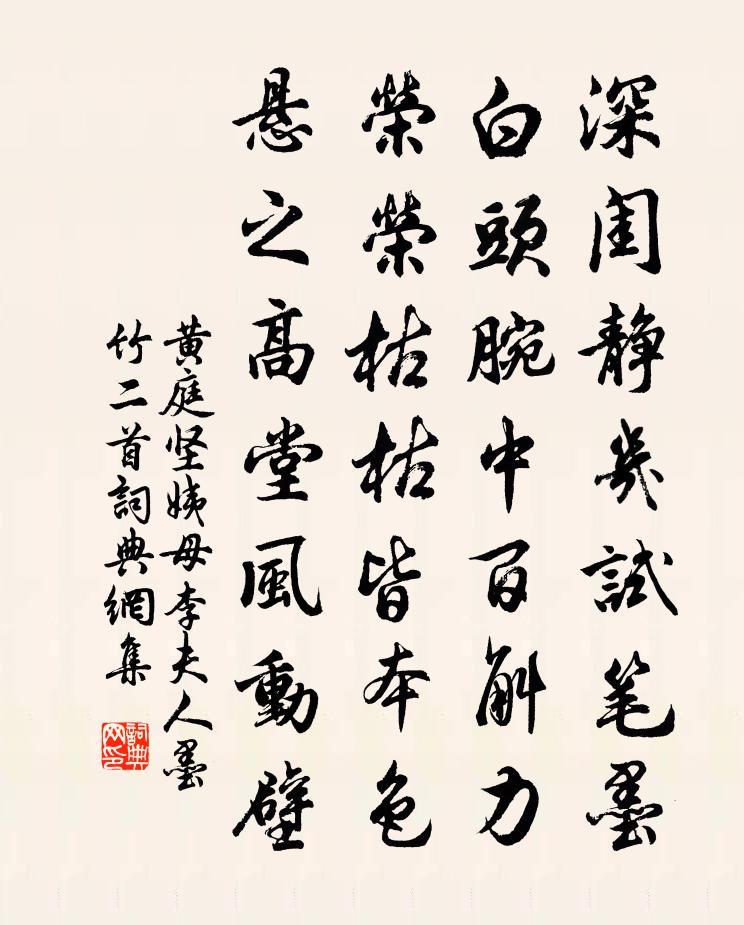 深闺静几試笔墨
白頭腕中百斛力
榮榮枯枯皆本色
悬之高堂風動壁
黄庭坚姨母李夫人墨
竹二首詞典網集
詞典
网印